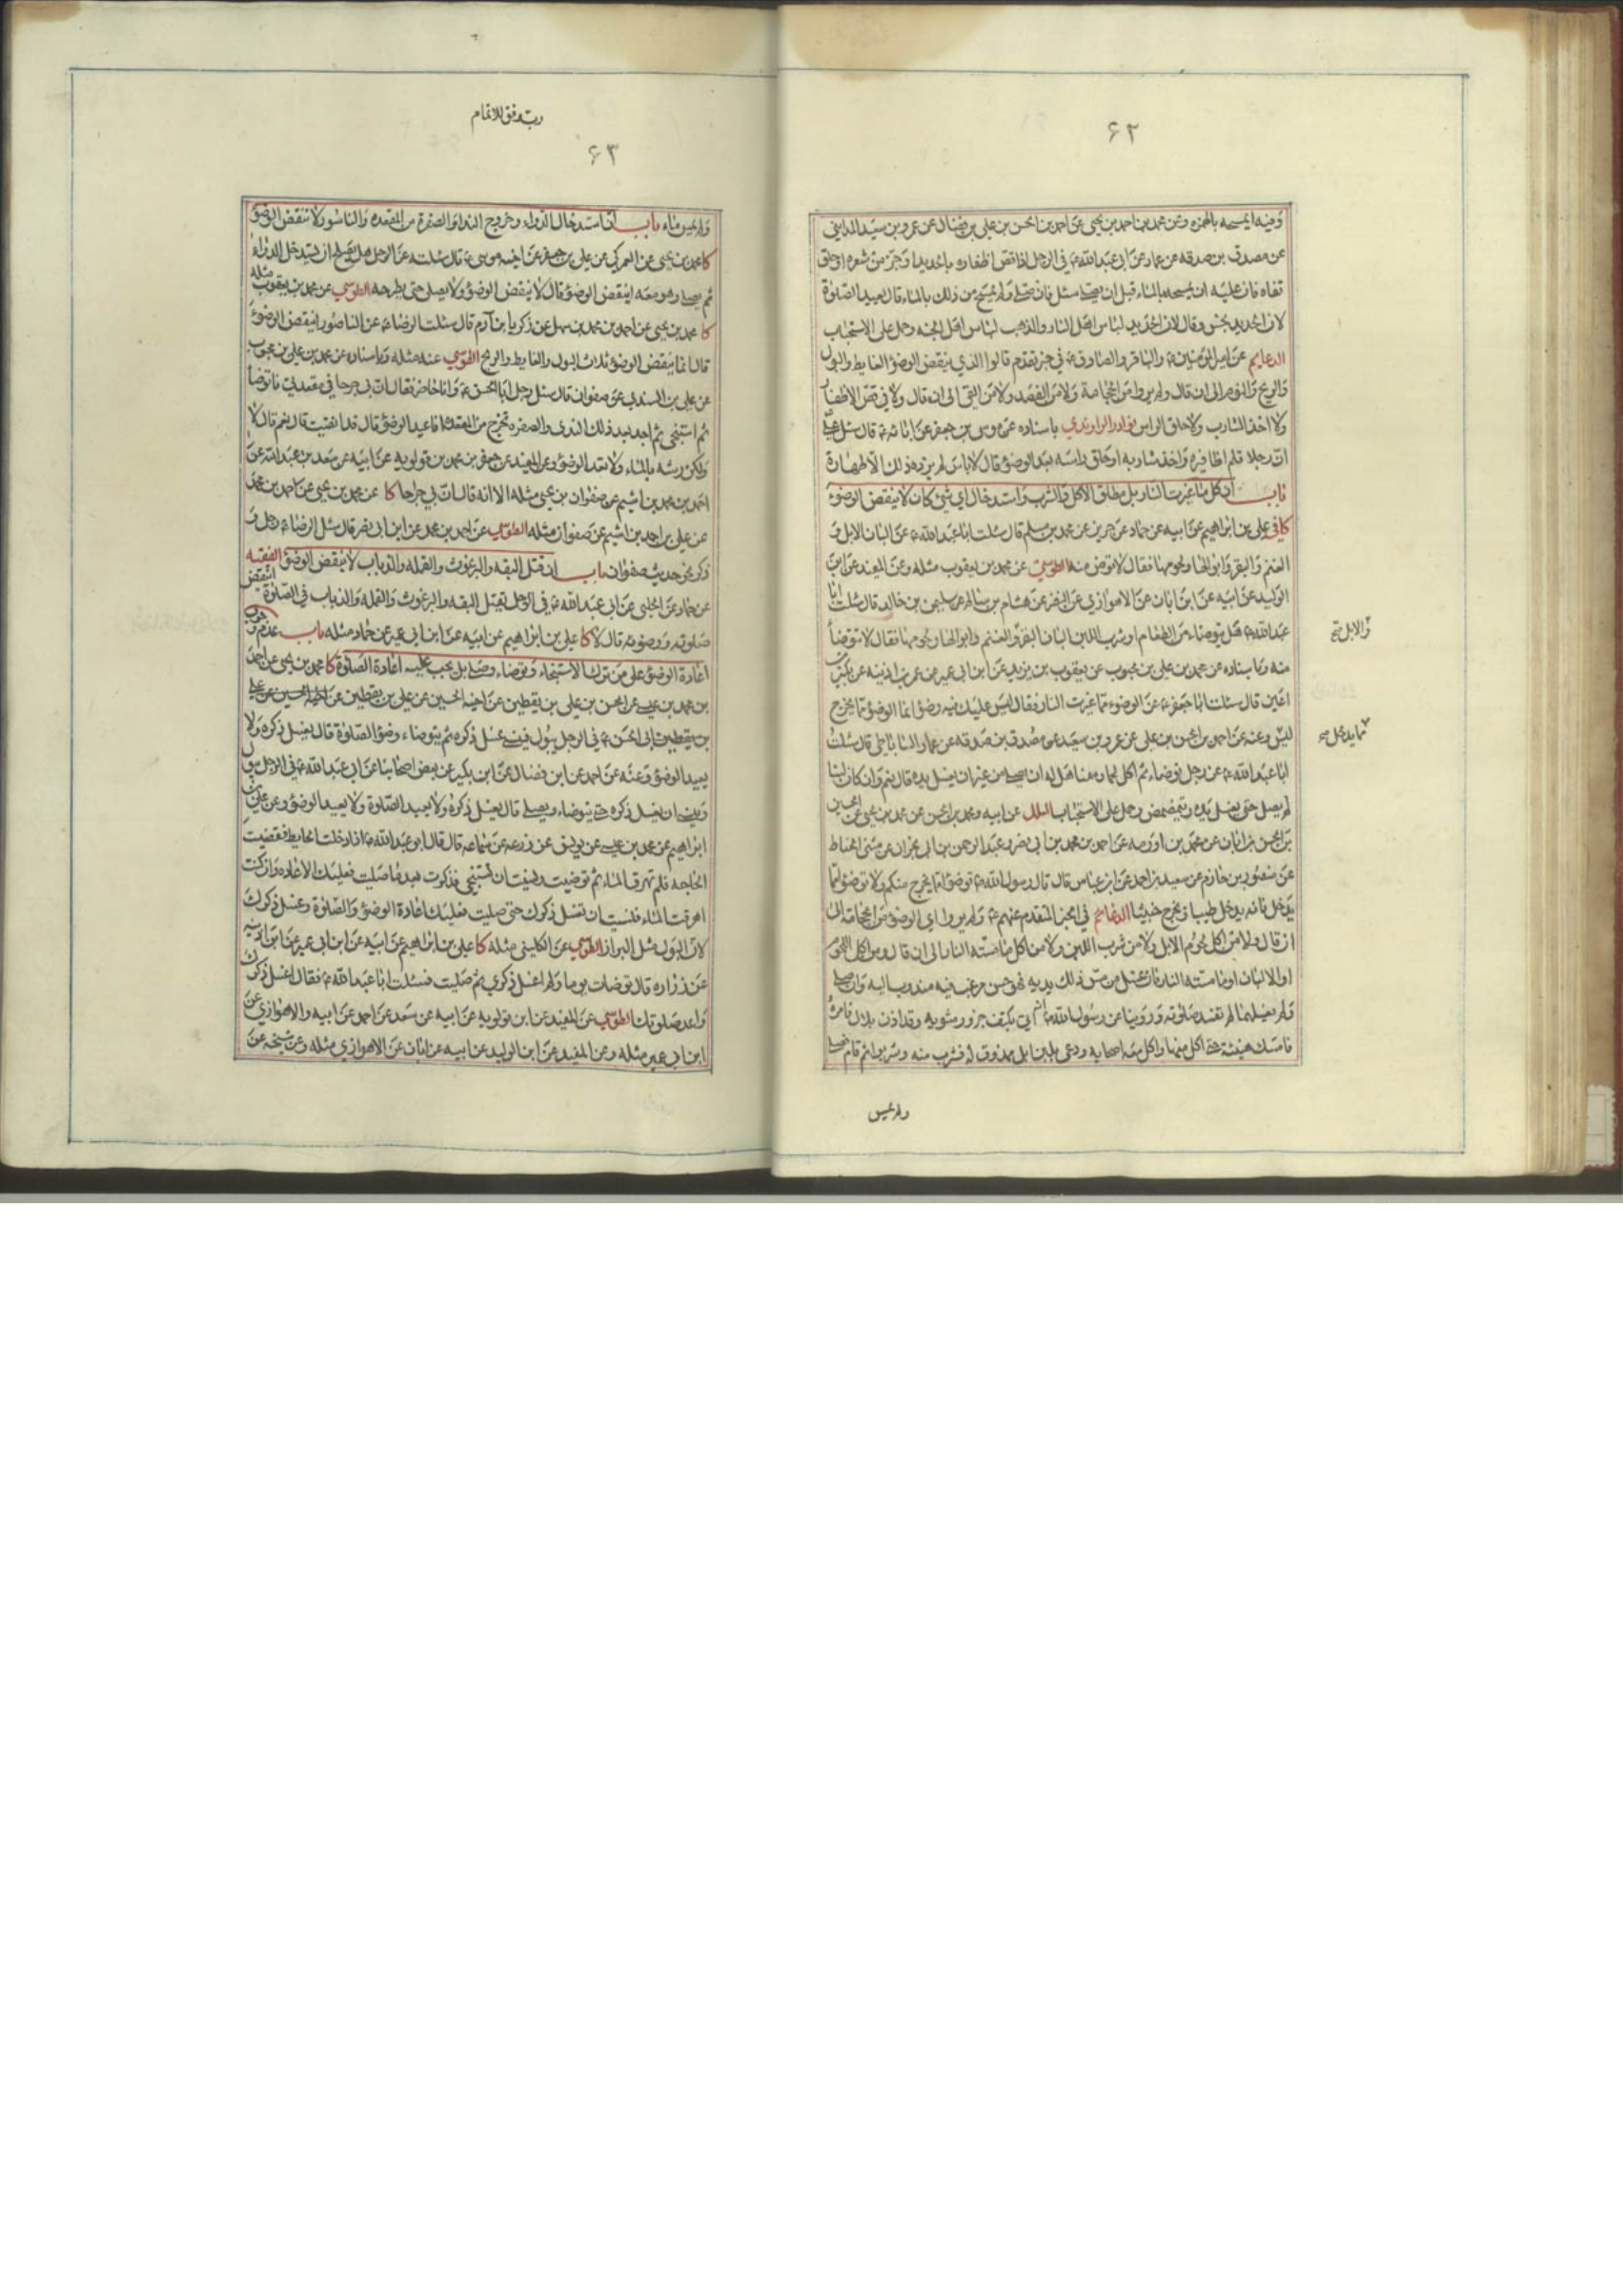 ۶۲
وفیه ایمسحه بالهمزه وعن محمد بن احمد بن یحیی عن احمد بن الحسن بن علی بن فضال عن عمرو بن سعید المداینی
عن مصدق بن صدقه عن عمار عن ابی عبدالله ع فی الرجل اذا قص اظفاره بالحدید او جز من شعره او حلق
قفاه فان علیه ان یمسحه بالماء قبل ان یصلی سئل فان صلی ولم یمسح من ذلک بالماء قال یعید الصلوة
لان الحدید نجس وقال لان الحدید لباس اهل النار والذهب لباس اهل الجنه وحمل علی الاستحباب
الدعایم عن امیرالمؤمنین ع والباقر والصادق ع فی خبر تقدم قالوا الذی ینقض الوضوء الغایط والبول
والریح والنوم الی ان قال ولم یروا من الحجامة ولا من الفصد ولا من القی الی ان قال ولا فی قص الاظفار
ولا اخذ الشارب ولا حلق الراس نوادر الراوندی باسناده عن موسی بن جعفر عن ابائه ع قال سئل علی
ان رجلا قلم اظافیره واخذ شاربه او حلق راسه بعد الوضوء قال لا باس لم یزده ذلک الا طهارة
باب ان کل ما غیرت النار بل مطلق الاکل والشرب واستدخال ای شیء کان لا ینقض الوضوء
کافی علی بن ابراهیم عن ابیه عن حماد عن حریز عن محمد بن مسلم قال سئلت اباعبدالله ع عن البان الابل و
الغنم والبقر وابوالها ولحومها فقال لا توض منه الطوسی عن محمد بن یعقوب مثله وعن المفید عن ابن
الولید عن ابیه عن ابن ابان عن الاهوازی عن النضر عن هشام بن سالم عن سلیمن بن خالد قال سئلت ابا
عبدالله ع هل یتوضاء من الطعام او شرب اللبن البان البقر والغنم وابوالها ولحومها فقال لا تتوضأ
والابل
منه وباسناده عن محمد بن علی بن محبوب عن یعقوب بن یزید عن ابن ابی عمیر عن عمر بن اذینه عن بکیر بن
اعین قال سئلت ابا جعفر ع عن الوضوء مما غیرت النار فقال لیس علیک فیه وضوء انما الوضوء مما یخرج
لیس وعنه عن احمد بن الحسن بن علی عن عمرو بن سعید عن مصدق بن صدقه عن عمار الساباطی قال سئلت
مما یدخل
اباعبدالله ع عن رجل توضاء ثم اکل لحما وسمنا هل له ان یصلی من غیر ان یغسل یده قال نعم وان کان لبنا
لم یصل حتی یغسل یده ویتمضمض وحمل علی الاستحباب العلل عن ابیه ومحمد بن الحسن عن محمد بن یحیی عن الحسین
بن الحسن بن ابان عن محمد بن اورمه عن احمد بن محمد بن ابی نصر وعبدالرحمن بن ابی نجران عن مثنی الحناط
عن منصور بن حازم عن سعید بن احمد عن ابن عباس قال قال رسول الله ص توضؤا مما یخرج منکم ولا توضؤا مما
یدخل فانه یدخل طیبا ویخرج خبیثا الدعایم فی الخبر المتقدم عنهم ع ولم یروا ای الوضوء من الحجامه الی
ان قال ولا من اکل لحوم الابل ولا من شرب اللبن ولا من اکل ما مسته النار الی ان قال ومن اکل اللحوم
او الالبان او ما مسته النار فان غسل من مس ذلک یدیه فهو حسن مرغب فیه مندوب الیه وان صلی
ولم یغسلهما لم تفسد صلوته وروینا عن رسول الله ص اتی بکتف جزور مشویه وقد اذن بلال فامره
فامسک هنیئة حتی اکل منها واکل معه اصحابه ودعی بلبن ابل ممذوق له فشرب منه وشربوا ثم قام فصلی
ولم یمس
رب وفق للاتمام
۶۳
ولم یمس ماء باب ان استدخال الدواء وخروج الندا والصفرة من المقعده والناسور لا تنقض الوضوء
کا محمد بن یحیی عن العمرکی عن علی بن جعفر عن اخیه موسی ع قال سئلته عن الرجل هل یصلح ان یستدخل الدواء
ثم یصلی وهو معه اینقض الوضوء قال لا ینقض الوضوء ولا یصل حتی یطرحه الطوسی عن محمد بن یعقوب مثله
کا محمد بن یحیی عن احمد بن محمد بن سهل عن زکریا بن آدم قال سئلت الرضا ع عن الناصور اینقض الوضوء
قال انما ینقض الوضوء ثلاث البول والغایط والریح الطوسی عنه مثله وباسناده عن محمد بن علی بن محبوب
عن علی بن السندی عن صفوان قال سئل رجل ابا الحسن ع وانا حاضر فقال ان بی جرحا فی مقعدتی فاتوضأ
ثم استنجی ثم اجد بعد ذلک الندی والصفره تخرج من المقعده افاعید الوضوء قال قد انقیت قال نعم قال لا
ولکن رشه بالماء ولا تعد الوضوء وعن المفید عن جعفر بن محمد بن قولویه عن ابیه عن سعد بن عبدالله عن
احمد بن محمد بن اشیم عن صفوان بن یحیی مثله الا انه قال ان بی جراحا کا عن محمد بن یحیی عن احمد بن محمد
عن علی بن احمد بن اشیم عن صفوان مثله الطوسی عن احمد بن محمد عن ابن ابی نصر قال سئل الرضا ع رجل و
ذکر نحو حدیث صفوان باب ان قتل البقه والبرغوث والقمله والذباب لا ینقض الوضوء الفقیه
عن حماد عن الحلبی عن ابی عبدالله ع فی الرجل یقتل البقه والبرغوث والقمله والذباب فی الصلوة اینقض
صلوته ووضوئه قال لا کا علی بن ابراهیم عن ابیه عن ابن ابی عمیر عن حماد مثله باب عدم وجوب
اعادة الوضوء علی من ترک الاستنجاء وتوضاء وصلی بل یجب علیه اعادة الصلوة کا محمد بن یحیی عن احمد
بن محمد بن عیسی عن الحسن بن علی بن یقطین عن اخیه الحسین عن علی بن یقطین
بن یقطین ابی الحسن ع فی الرجل یبول فینسی غسل ذکره ثم یتوضاء وضوء الصلوة قال یغسل ذکره ولا
یعید الوضوء وعنه عن احمد عن ابن فضال عن ابن بکیر عن بعض اصحابنا عن ابی عبدالله ع فی الرجل یبول
وینسی ان یغسل ذکره حتی یتوضاء ویصلی قال یغسل ذکره ولا یعید الصلوة ولا یعید الوضوء وعن علی بن
ابراهیم عن محمد بن عیسی عن یونس عن زرعه عن سماعه قال قال ابوعبدالله ع اذا دخلت الغایط فقضیت
الحاجه فلم تهرق الماء ثم توضیت ونسیت ان تستنجی فذکرت بعد ما صلیت فعلیک الاعاده وان کنت
اهرقت الماء فنسیت ان تغسل ذکرک حتی صلیت فعلیک اعادة الوضوء والصلوة وغسل ذکرک
لان البول مثل البراز الطوسی عن الکلینی مثله کا علی بن ابراهیم عن ابیه عن ابن ابی عمیر عن ابن اذینه
عن زراره قال توضات یوما ولم اغسل ذکری ثم صلیت فسئلت اباعبدالله ع فقال اغسل ذکرک
واعد صلوتک الطوسی عن المفید عن ابن قولویه عن ابیه عن سعد عن احمد عن ابیه والاهوازی عن
ابن ابی عمیر مثله وعن المفید عن ابن الولید عن ابیه عن ابان عن الاهوازی مثله وعن شیخه عن